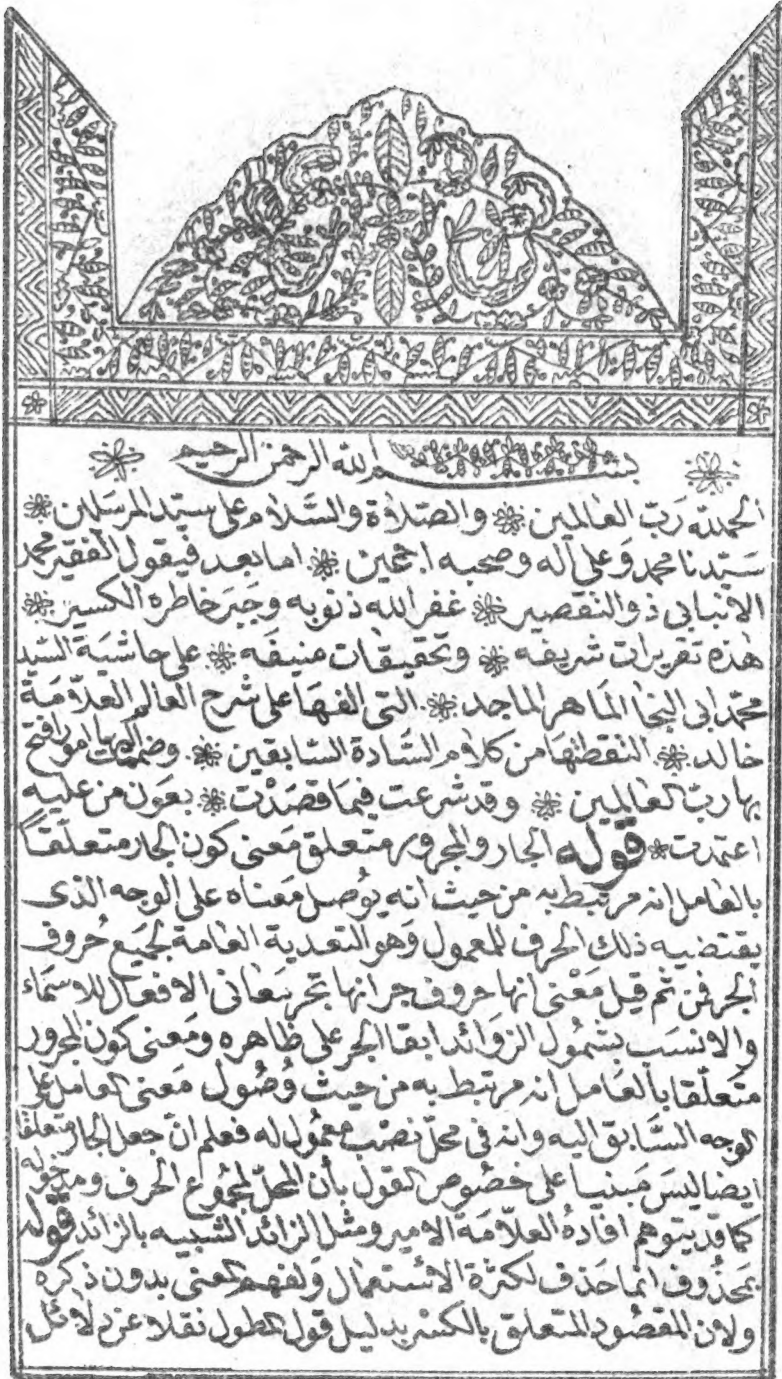 بسم الله الرحمن الرحيم
الحمد لله رب العالمين * والصلاة والسلام على سيد المرسلين *
سيدنا محمد وعلى آله وصحبه اجمعين * اما بعد فيقول الفقير محمد
الانبابى ذو التقصير * غفر الله ذنوبه وجبر خاطره الكسير *
هذه تقريرات شريفه * وتحقيقات منيفه * على حاشية السيد
محمد ابى النجا الماهر الماجد * التى الفها على شرح العالم العلامة
خالد * التقطتها من كلام السادة السابقين * وضممت اليها امورا فتح
بها رب العالمين * وقد شرعت فيما قصدت * بعون من عليه
اعتمدت * قوله الجار والمجرور متعلق معنى كون الجار متعلقا
بالعامل انه مرتبط به من حيث انه يوصل معناه على الوجه الذى
يقتضيه ذلك الحرف للمعمول وهو التعدية العامة لجميع حروف
الجر فمن ثم قيل معنى انها حروف جر انها تجر معانى الافعال للاسماء
والانسب بشمول الزوائد ابقا الجر على ظاهره ومعنى كون المجرور
متعلقا بالعامل انه مرتبط به من حيث وصول معنى العامل على
الوجه السابق اليه وانه فى محل نصب معمول له فعلم ان جعل الجار متعلقا
ايضا ليس مبنيا على خصوص القول بأن المحل لمجموع الحرف ومدخوله
كما قد يتوهم افاده العلامة الامير ومثل الزائد الشبيه بالزائد قوله
بمحذوف انما حذف لكثرة الاستعمال ولفهم المعنى بدون ذكره
ولان المقصود المتعلق بالكسر بدليل قول المطول نقلا عن دلائل